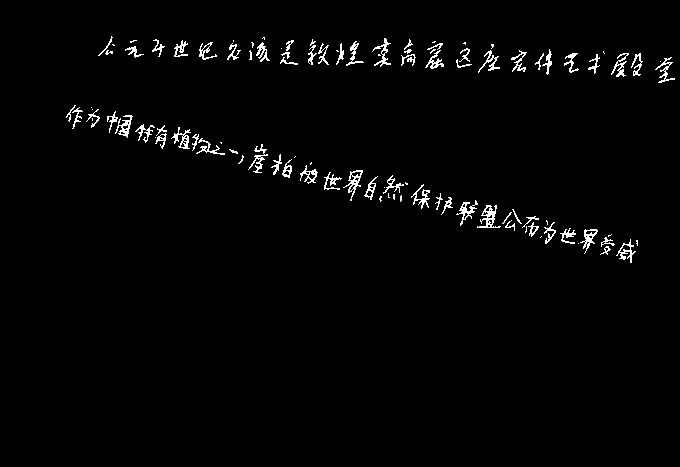 公元4世纪应该是敦煌莫高窟这座宏伟艺术殿堂
作为中国特有植物之一,崖柏被世界自然保护联盟公布为世界受威